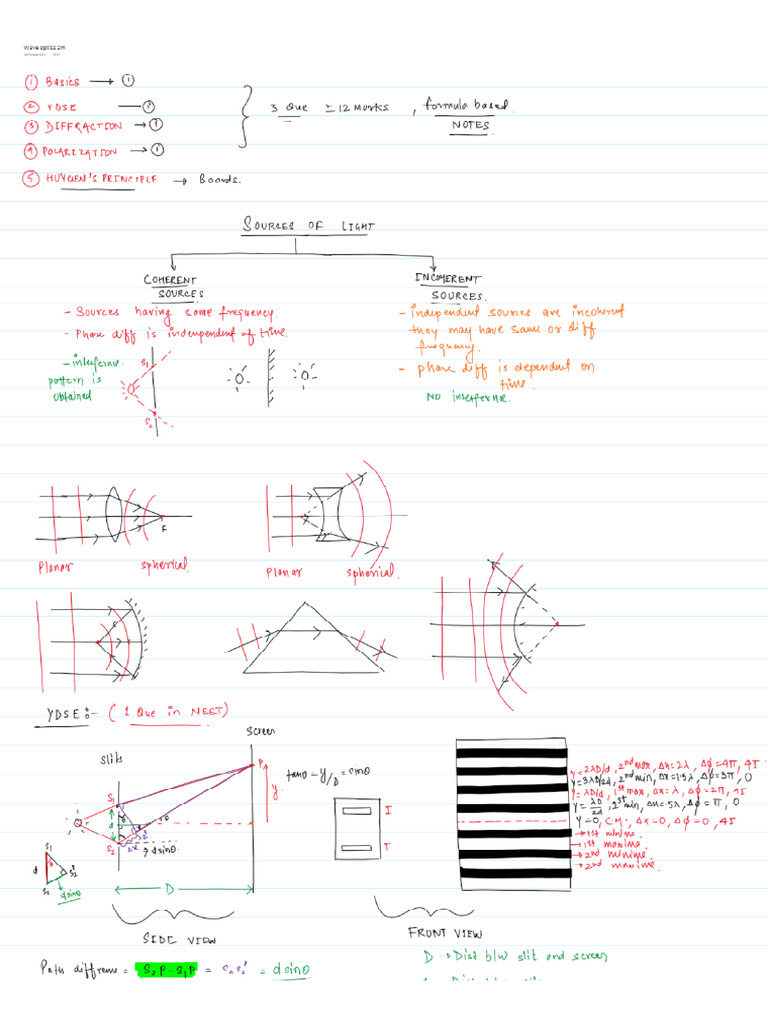 Wave optics 2m
① Basics → ①
② YDSE → ①
③ DIFFRACTION → ①
④ POLARIZATION → ①
3 Que ≃ 12 Marks , formula based
NOTES
⑤ HUYGEN'S PRINCIPLE → Boards.
SOURCES OF LIGHT
COHERENT
SOURCES
INCOHERENT
SOURCES.
- Sources having same frequency.
- Phase diff is independent of time.
- interfernce
pattern is
obtained
S1
S2
- independent sources are incoherent
they may have same or diff
frequency.
- phase diff is dependent on
time.
No interfernce.
F
Planar spherical.
Planar spherical.
YDSE:- ( 1 Que in NEET)
Slits
Screen
S1
S2
d
θ
P
y
Δx
S2'
→ dsinθ
D
tanθ = y/D = sinθ
I
I
S1
d
θ
S2
S2'
dsinθ
y = 2λD/d, 2nd max, Δx = 2λ, Δϕ = 4π, 4I
y = 3λD/2d, 2nd min, Δx = 1.5λ, Δϕ = 3π, 0
y = λD/d, 1st max, Δx = λ, Δϕ = 2π, 4I
y = λD/2d, 1st min, Δx = .5λ, Δϕ = π, 0
y = 0, C.M., Δx = 0, Δϕ = 0, 4I
→ 1st minima.
→ 1st maxima.
→ 2nd minima.
→ 2nd maxima.
SIDE VIEW
FRONT VIEW
Path diffrence = S2P - S1P = S2S2' = dsinθ
D → Dist b/w slit and screen